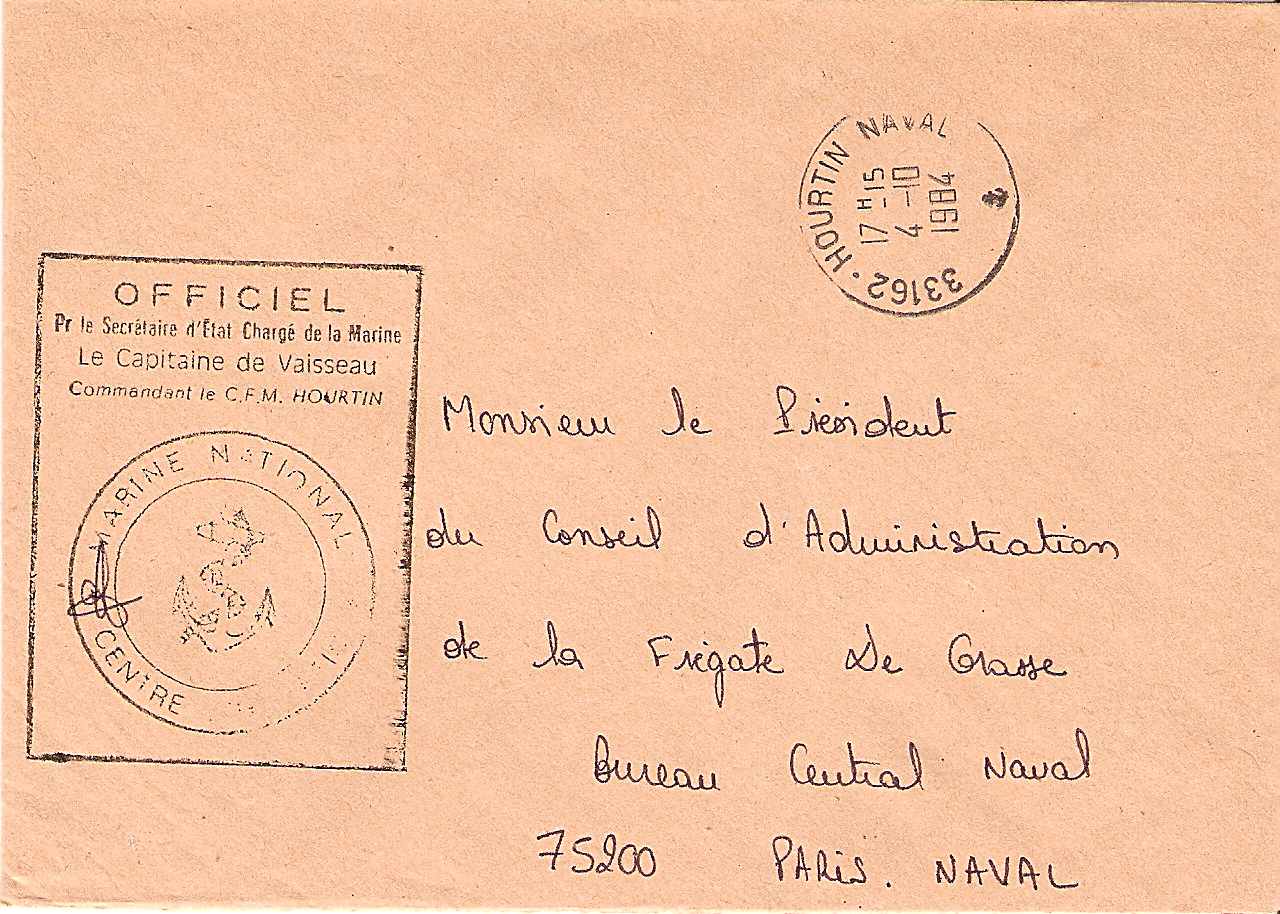 33162 · HOURTIN NAVAL
17H-15
4-10
1984
OFFICIEL
Pr le Secrétaire d'État Chargé de la Marine
Le Capitaine de Vaisseau
Commandant le C.F.M. HOURTIN
MARINE NATIONAL
CENTRE
Monsieur le Président
du Conseil d'Administration
de la Frégate De Grasse
Bureau Central Naval
75200 PARIS. NAVAL